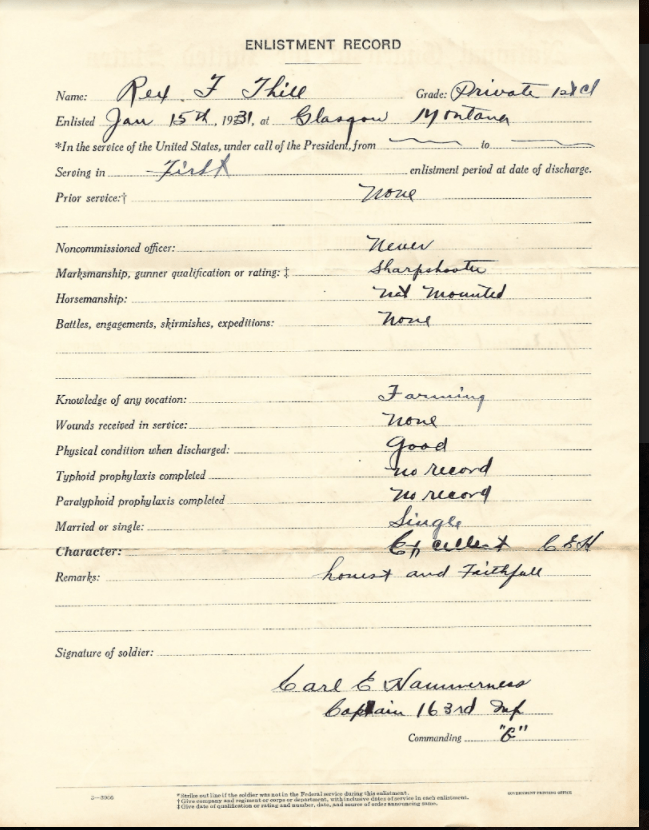 ENLISTMENT RECORD
Name: Rex F Thill Grade: Private 1st Cl
Enlisted Jan 15th, 1931, at Glasgow Montana
*In the service of the United States, under call of the President, from to
Serving in First enlistment period at date of discharge.
Prior service:† None
Noncommissioned officer: Never
Marksmanship, gunner qualification or rating: ‡ Sharpshooter
Horsemanship: not mounted
Battles, engagements, skirmishes, expeditions: None
Knowledge of any vocation: Farming
Wounds received in service: None
Physical condition when discharged: Good
Typhoid prophylaxis completed no record
Paratyphoid prophylaxis completed no record
Married or single: Single
Character: Excellent C E H
Remarks: honest and Faithfull
Signature of soldier:
Carl E Hammerness
Captain 163rd Inf
Commanding
*Strike out line if the soldier was not in the Federal service during this enlistment.
†Give company and regiment or corps or department, with inclusive dates of service in each enlistment.
‡Give date of qualification or rating and number, date, and source of order announcing same.
GOVERNMENT PRINTING OFFICE